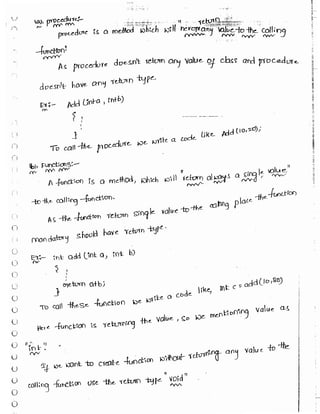 procedures:-
procedure is a method which will never return any value to the calling
function.
As procedure doesn't return any value of class and procedure
doesn't have any return type.
Ex:- Add (int a, int b)
{
}
To call the procedure we write a code like Add (10,20);
Functions:-
A function is a method, which will "return always a single value"
to the calling function.
As the function return single value to the calling place the function
mandatory should have return type.
Ex:- int add (int a, int b)
{
return a+b;
}
To call these function we write a code like, int c = add(10,20)
Here function is returning the value, so we mentioning value as
"int".
If we want to create function without returning any value to the
calling function use the return type "void"